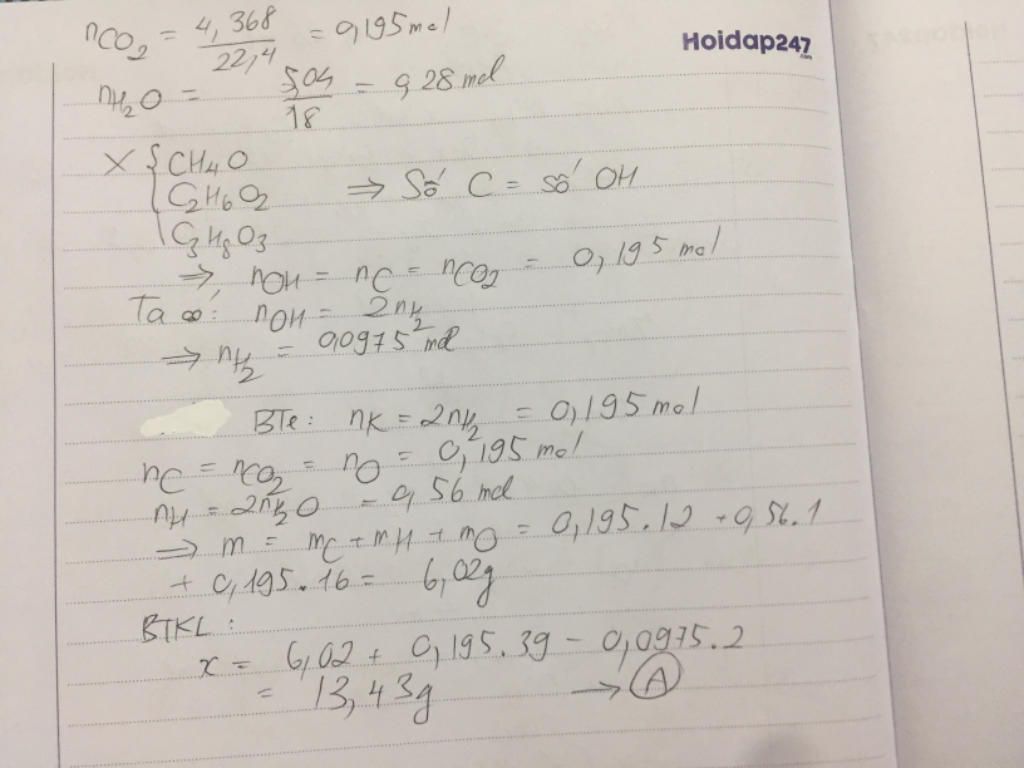 nCO2 = 4,368/22,4 = 0,195 mol
Hoidap247.com
nH2O = 5,04/18 = 0,28 mol
X { CH4O
C2H6O2 ⇒ Số C = số OH
C3H8O3
⇒ nOH = nC = nCO2 = 0,195 mol
Ta có: nOH = 2nH2
⇒ nH2 = 0,0975 mol
BTe: nK = 2nH2 = 0,195 mol
nC = nCO2 = nO = 0,195 mol
nH = 2nH2O = 0,56 mol
⇒ m = mC + mH + mO = 0,195.12 + 0,56.1
+ 0,195.16 = 6,02g
BTKL:
x = 6,02 + 0,195.39 - 0,0975.2
= 13,43g → A